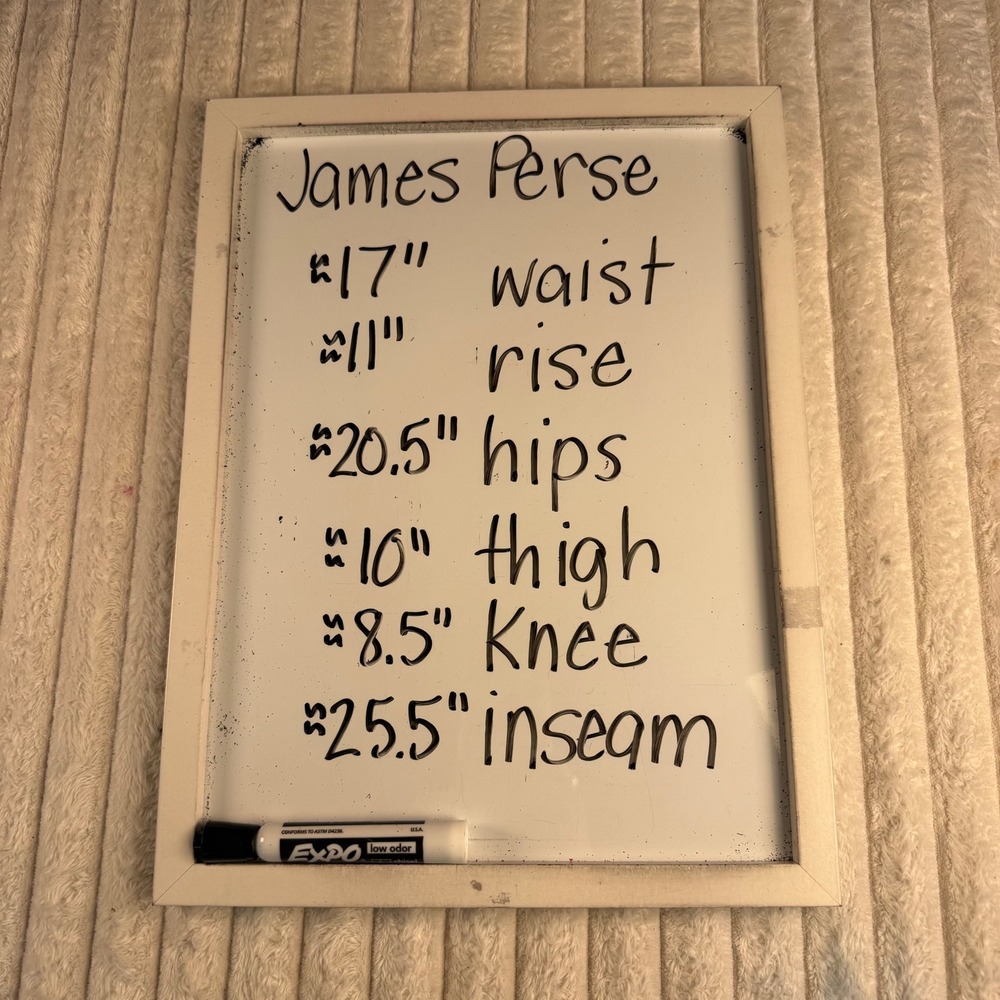 James Perse
≈17" waist
≈11" rise
≈20.5" hips
≈10" thigh
≈8.5" Knee
≈25.5" inseam
CONFORMS TO ASTM D4236 U.S.A.
EXPO low odor